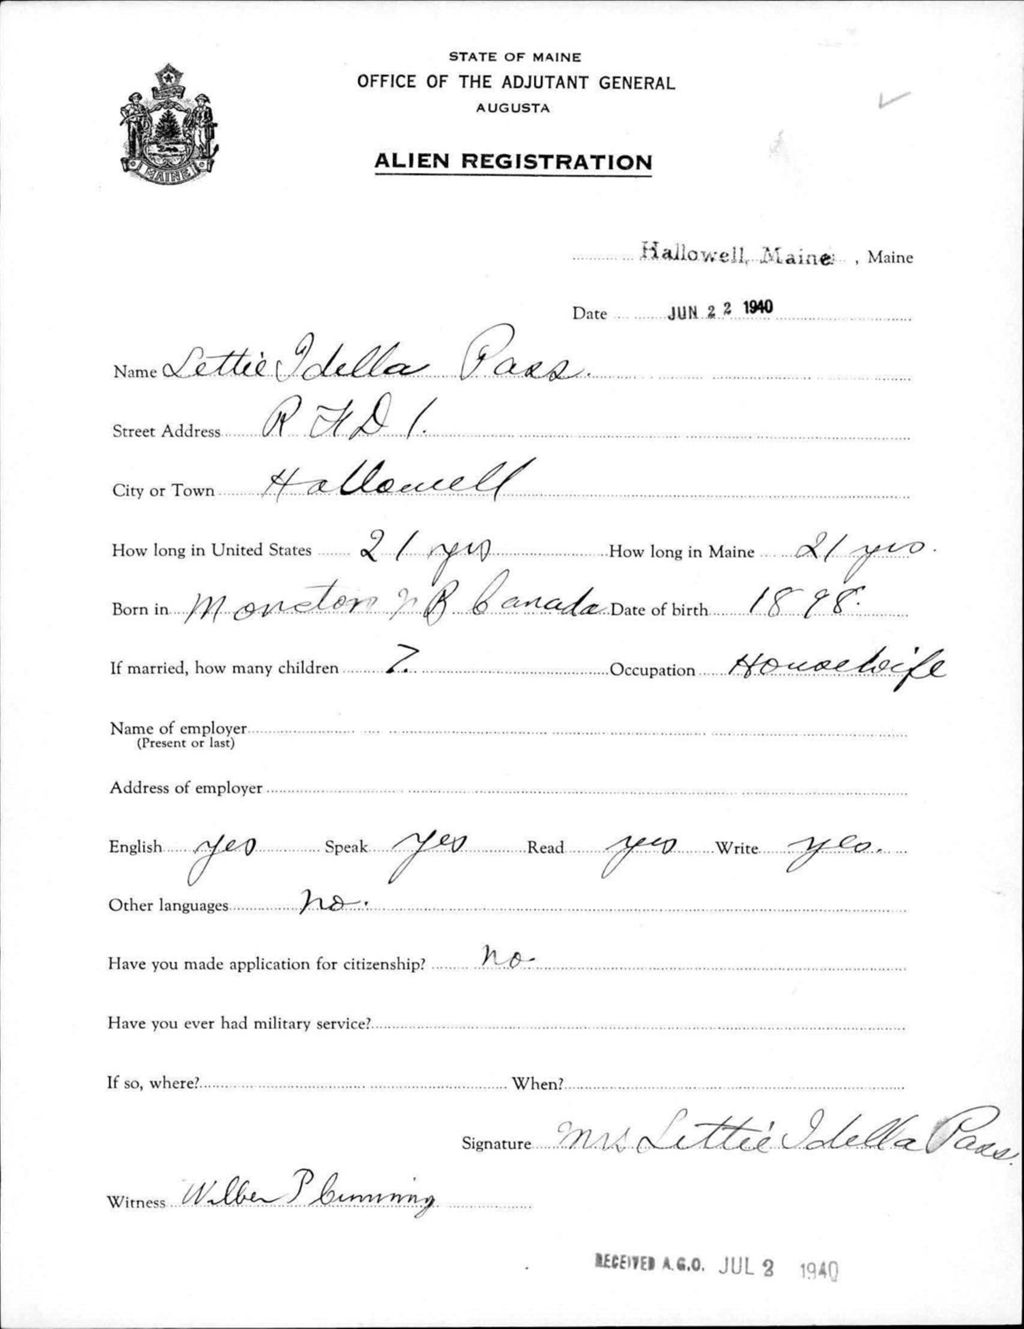 STATE OF MAINE
OFFICE OF THE ADJUTANT GENERAL
AUGUSTA
ALIEN REGISTRATION
MAINE
Hallowell, Maine, Maine
Date JUN 22 1940
Name Lettie Idella Pass.
Street Address R F D 1.
City or Town Hallowell
How long in United States 21 yrs How long in Maine 21 yrs.
Born in Moncton N B Canada Date of birth 1898.
If married, how many children 7. Occupation Housewife
Name of employer
(Present or last)
Address of employer
English yes Speak yes Read yes Write yes.
Other languages no.
Have you made application for citizenship? no.
Have you ever had military service?
If so, where? When?
Signature Mrs Lettie Idella Pass.
Witness Wilber P Cumming
RECEIVED A.G.O. JUL 2 1940